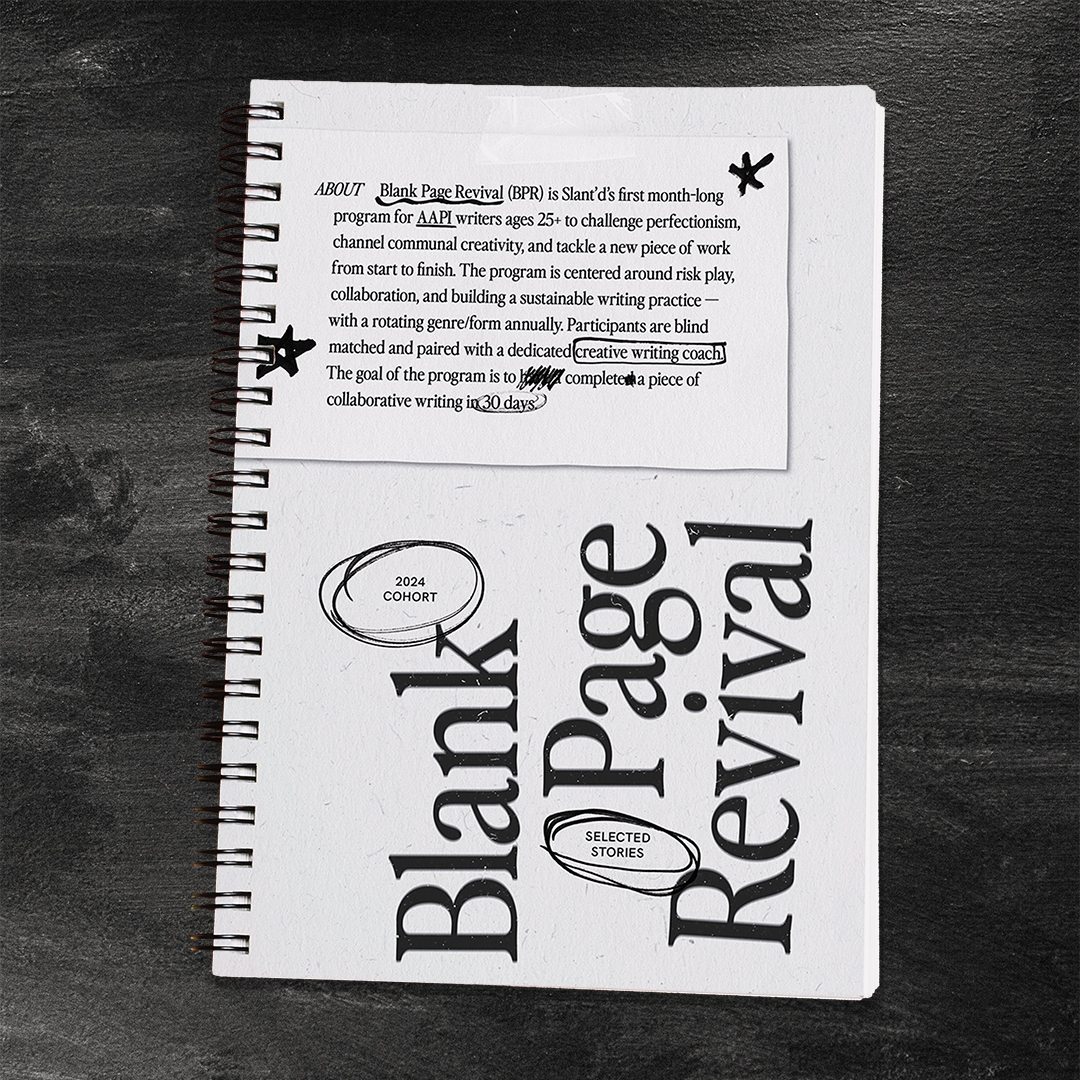 ABOUT Blank Page Revival (BPR) is Slant'd's first month-long
program for AAPI writers ages 25+ to challenge perfectionism,
channel communal creativity, and tackle a new piece of work
from start to finish. The program is centered around risk play,
collaboration, and building a sustainable writing practice —
with a rotating genre/form annually. Participants are blind
matched and paired with a dedicated creative writing coach.
The goal of the program is to complete a piece of
collaborative writing in 30 days.
2024
COHORT
Blank
Page
Revival
SELECTED
STORIES